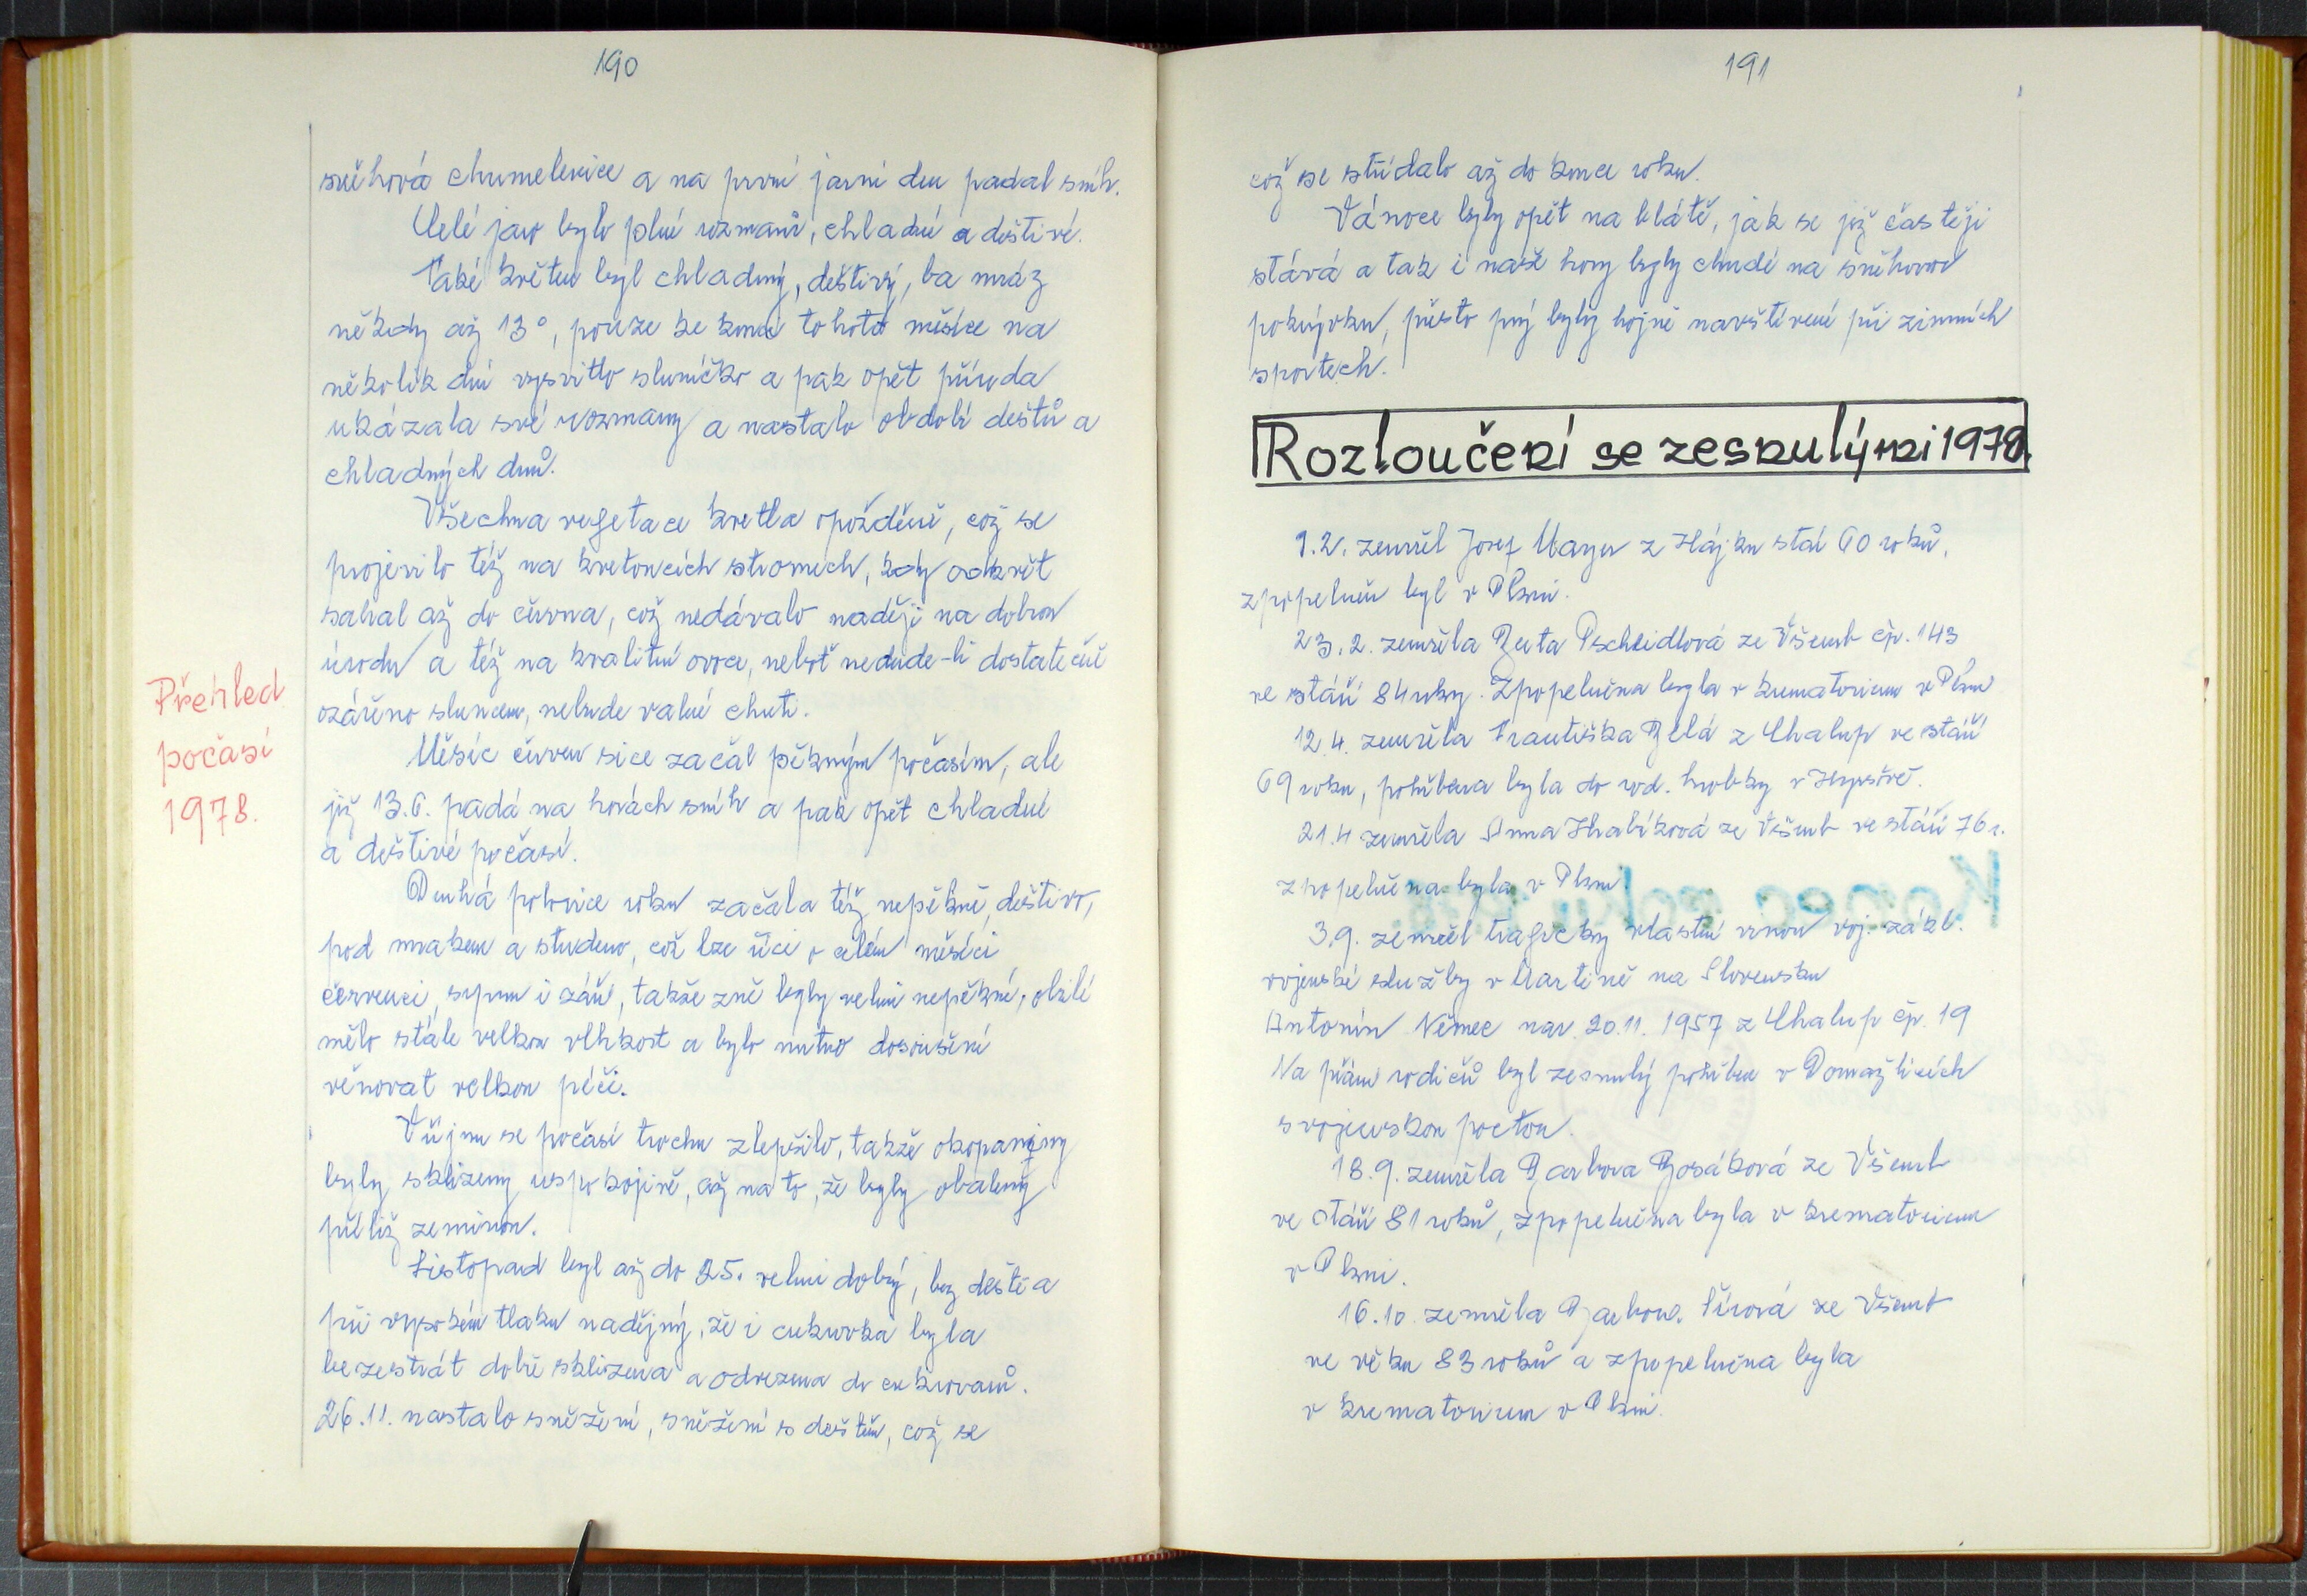 190
sněhová chumelenice a na první jarní den padal sníh.
Celé jaro bylo plné rozmarů, chladné a deštivé.
Také květen byl chladný, deštivý, ba mráz
někdy až 13°, pouze ke konci tohoto měsíce na
několik dní vysvitlo sluníčko a pak opět příroda
ukázala své rozmary a nastalo období dešťů a
chladných dnů.
Všechna vegetace kvetla opožděně, což se
projevilo též na kvetoucích stromech, kdy odkvět
sahal až do června, což nedávalo naději na dobrou
úrodu a též na kvalitní ovoce, neboť nedude-li dostatečně
ozářeno sluncem, nebude valné chuti.
Přehled
počasí
1978.
Měsíc červen sice začal pěkným počasím, ale
již 13.6. padá na horách sníh a pak opět chladné
a deštivé počasí.
Druhá polovice roku začala též nepěkně, deštivo,
pod mrakem a studeno, což lze říci o celém měsíci
červenci, srpnu i září, takže žně byly velmi nepěkné, obilí
mělo stále velkou vlhkost a bylo nutno dosoušení
věnovat velkou péči.
V říjnu se počasí trochu zlepšilo, takže okopaniny
byly sklizeny uspokojivě, až na to, že byly obaleny
příliš zeminou.
Listopad byl až do 25. velmi dobrý, bez deště a
při vysokém tlaku nadějný, že i cukrovka byla
beze ztrát dobře sklizena a odvezena do cukrovarů.
26.11. nastalo sněžení, sněžení s deštěm, což se
191
což se střídalo až do konce roku.
Vánoce byly opět na blátě, jak se již častěji
stává a tak i naše hory byly chudé na sněhovou
pokrývku, přesto prý byly hojně navštívené při zimních
sportech.
Rozloučení se zesnulými 1978.
1.2. zemřel Josef Mayer z Hájku stár 60 roků,
zpopelněn byl v Plzni.
23.2. zemřela Beta Pscheidlová ze Všerub čp. 143
ve stáří 84 roky. Zpopelněna byla v krematorium v Plzni
12.4. zemřela Františka Bílá z Chalup ve stáří
69 roku, pohřbena byla do rod. hrobky v Hyršově.
21.4 zemřela Anna Hrabíková ze Všerub ve stáří 76 r.
zpopelněna byla v Plzni.
3.9. zemřel tragicky vlastní vinou voj. zákl.
vojenské služby v Martině na Slovensku
Antonín Němec nar. 20.11. 1957 z Chalup čp. 19
Na přání rodičů byl zesnulý pohřben v Domažlicích
s vojenskou poctou.
18.9. zemřela Barbora Bosáková ze Všerub
ve stáří 81 roků, zpopelněna byla v krematorium
v Plzni.
16.10. zemřela Barbora. Šírová ze Všerub
ve věku 83 roků a zpopelněna byla
v krematorium v Plzni.